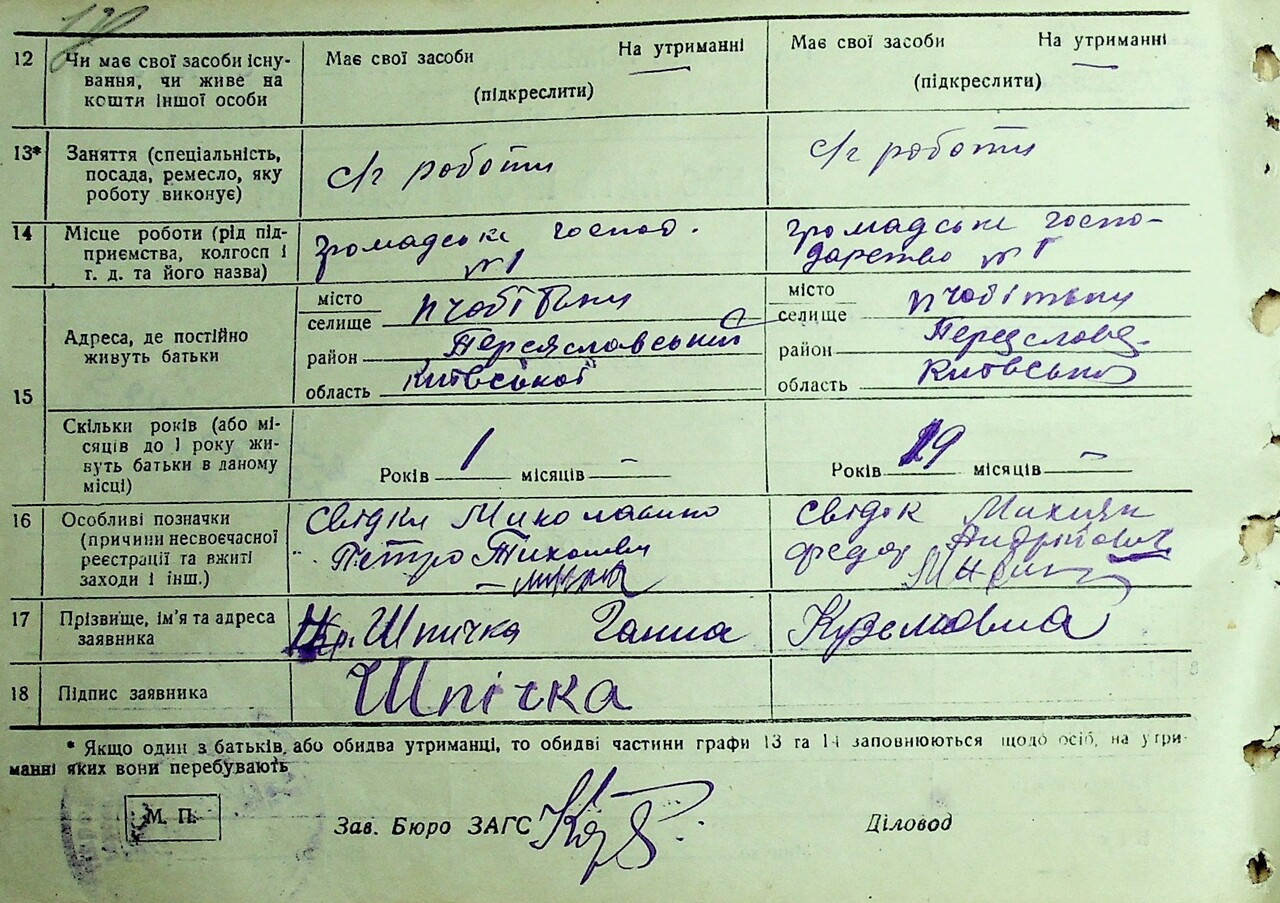 12 Чи має свої засоби існу-
вання, чи живе на
кошти іншої особи
Має свої засоби На утриманні
(підкреслити)
Має свої засоби На утриманні
(підкреслити)
13* Заняття (спеціальність,
посада, ремесло, яку
роботу виконує)
с/г роботи
с/г роботи
14 Місце роботи (рід під-
приємства, колгосп і
т. д. та його назва)
Громадське господ.
№ 1
Громадське госпо-
дарство № 1
15 Адреса, де постійно
живуть батьки
місто
селище пчобітьки
район Переяславський
область Київської
місто
селище пчобітьки
район Переяслове
область Київської
Скільки років (або мі-
сяців до 1 року жи-
вуть батьки в даному
місці)
Років 1 місяців –
Років 19 місяців –
16 Особливі позначки
(причини несвоєчасної
реєстрації та вжиті
заходи і інш.)
Свідки
Петро Тихонович
Свідок
Федор Андрійович
17 Прізвище, ім'я та адреса
заявника
Шпичка Ганна Куземовна
18 Підпис заявника
Шпічка
* Якщо один з батьків, або обидва утриманці, то обидві частини графи 13 та 14 заповнюються щодо осіб, на утри-
манні яких вони перебувають
М. П.
Зав. Бюро ЗАГС
Діловод